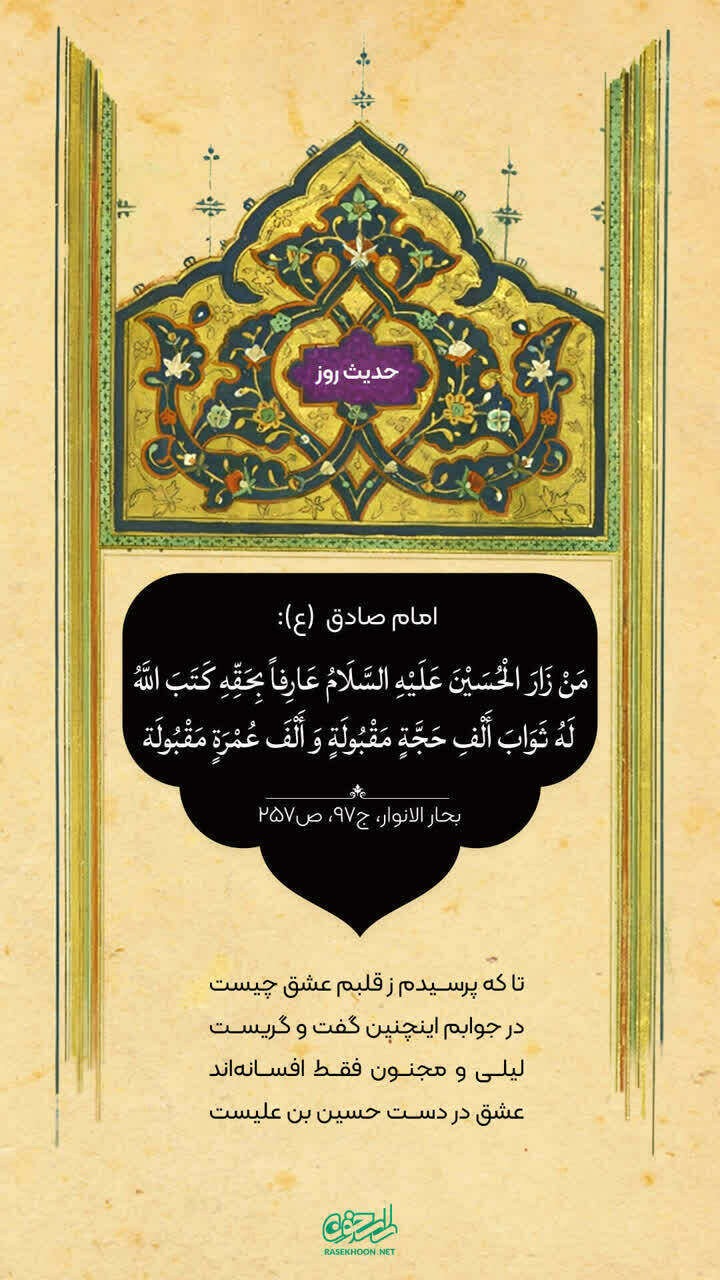 حدیث روز
امام صادق (ع):
مَنْ زَارَ الْحُسَيْنَ عَلَيْهِ السَّلَامُ عَارِفاً بِحَقِّهِ كَتَبَ اللَّهُ
لَهُ ثَوَابَ أَلْفِ حَجَّةٍ مَقْبُولَةٍ وَ أَلْفَ عُمْرَةٍ مَقْبُولَة
بحار الانوار، ج۹۷، ص۲۵۷
تا که پرسیدم ز قلبم عشق چیست
در جوابم اینچنین گفت و گریست
لیلی و مجنون فقط افسانه‌اند
عشق در دست حسین بن علیست
راسخون
RASEKHOON.NET